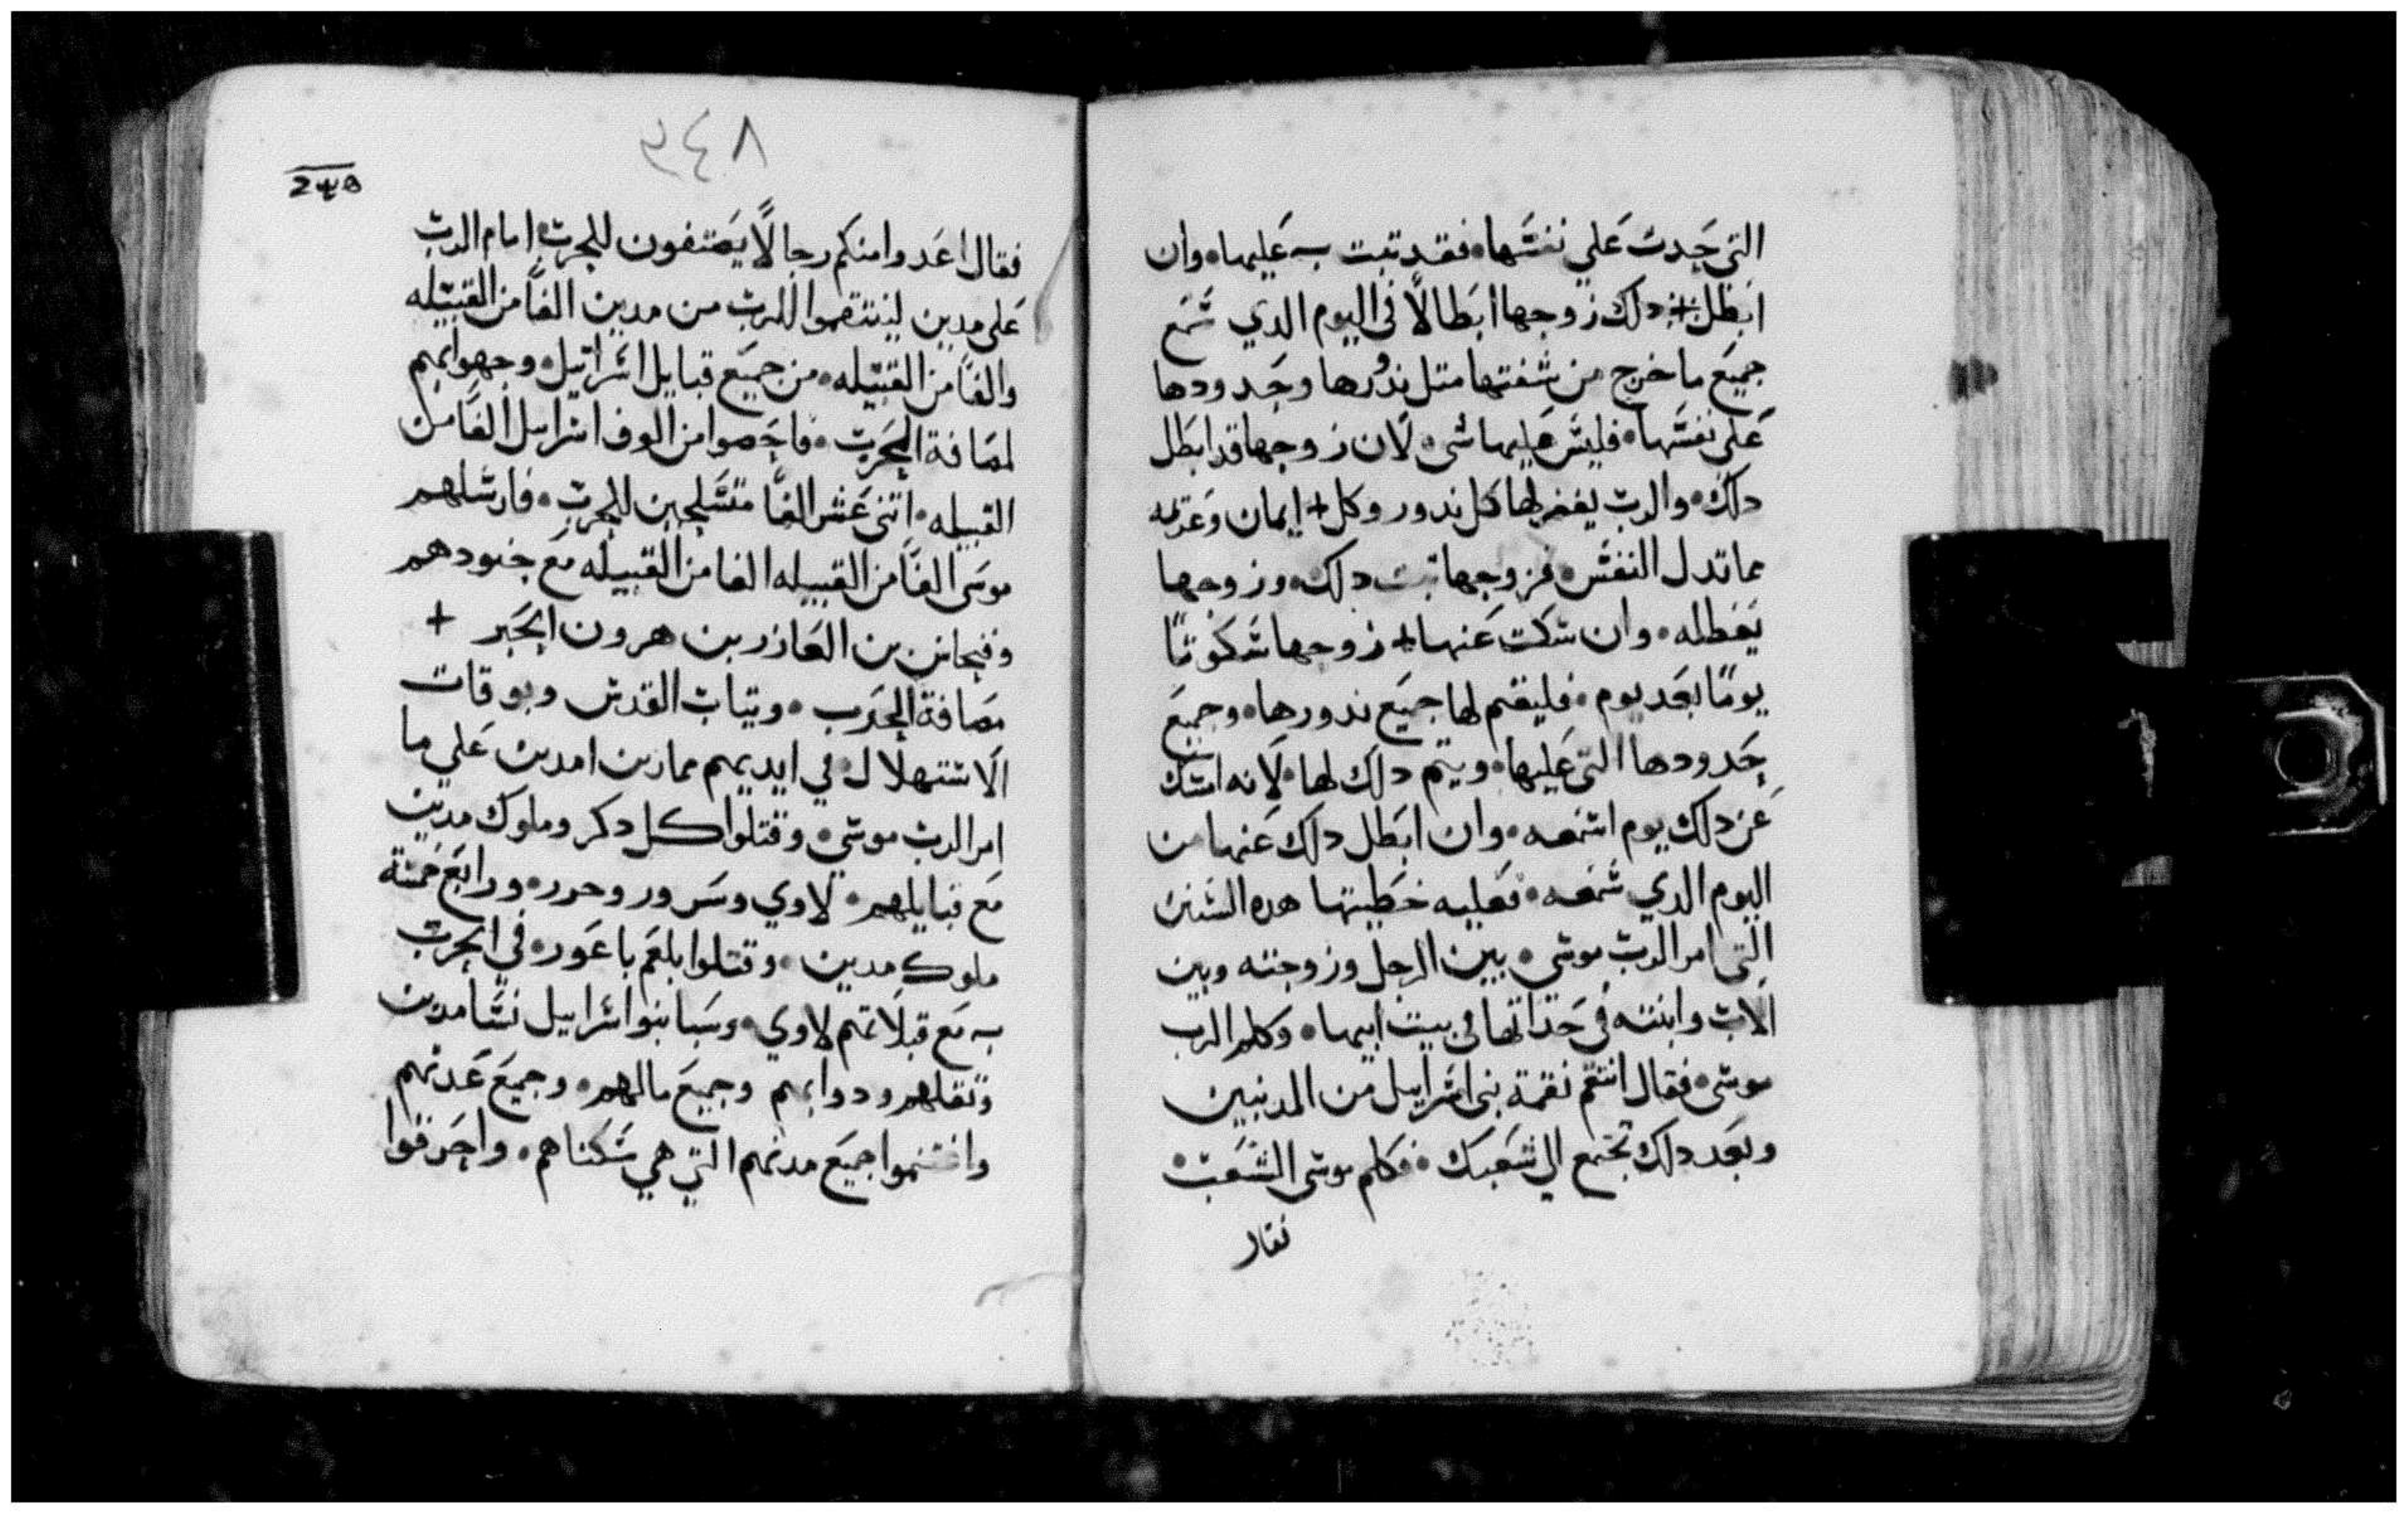 التي حدت علي نفسها فقد تبت به عليها وان
ابطل دلك زوجها ابطالًا في اليوم الدي سمع
جميع ما خرج من شفتها متل ندورها وحدودها
على نفسها فليس عليها شي لان زوجها قد ابطل
دلك والرب يغفر لها كل ندور وكل ايمان وعزيمه
مما تدل النفس فزوجها تبت دلك وزوجها
يعطله وان سكت عنها زوجها سكوتًا
يومًا بعد يوم فليقم لها جميع ندورها وجميع
حدودها التي عليها ويتم دلك لها لانه امسك
عن دلك يوم اسمعه وان ابطل دلك عنها من
اليوم الدي سمعه فعليه خطيتها هده السنن
التي امر الرب موسي بين الرجل وزوجته وبين
الاب وابنته في حداتها في بيت ابيها وكلم الرب
موسى فقال انتقم نقمة بني اسراييل من المدنيين
وبعد دلك تجتمع الي شعبك فكلم موسى الشعب
فقال
٣٤٨
فقال اعدوا منكم رجالًا يصتفون للحرب امام الرب
على مدين لينتقموا للرب من مدين الفًا من القبيله
والفًا من القبيله من جميع قبايل اسراييل وجهوا بهم
لمصافة الحرب فاحصوا من الوف اسراييل الفًا من
القبيله اتني عشر الفًا متسلحين للحرب فارسلهم
موسى الفًا من القبيله الفا من القبيله مع جنودهم
وفنحاس بن العازر بن هرون الحبر
مصافة الحرب وتياب القدس وبوقات
الاستهلال في ايديهم ممارين امدين علي ما
امر الرب موسي وقتلوا كل دكر وملوك مدين
مع قبايلهم لاوي وسرور وحرر ورابع خمسة
ملوك مدين وقتلوا بلعم باعور في الحرب
به مع قبلاتهم لاوي وسبا بنوا اسراييل نسا مدين
وتقلهم ودوابهم وجميع مالهم وجميع عدتهم
واغتنموا جميع مدنهم التي هي سكناهم واحرقوا